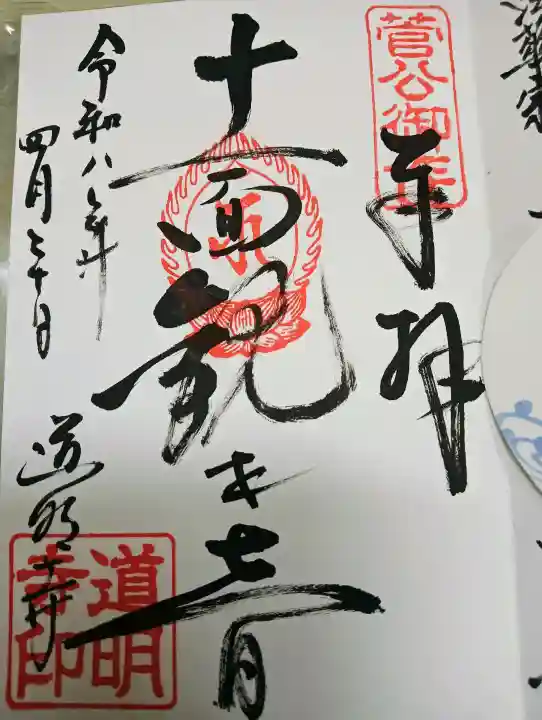 菅公御作
奉拝
十一面観世音
令和八年
四月二十日
道明寺
道明寺印